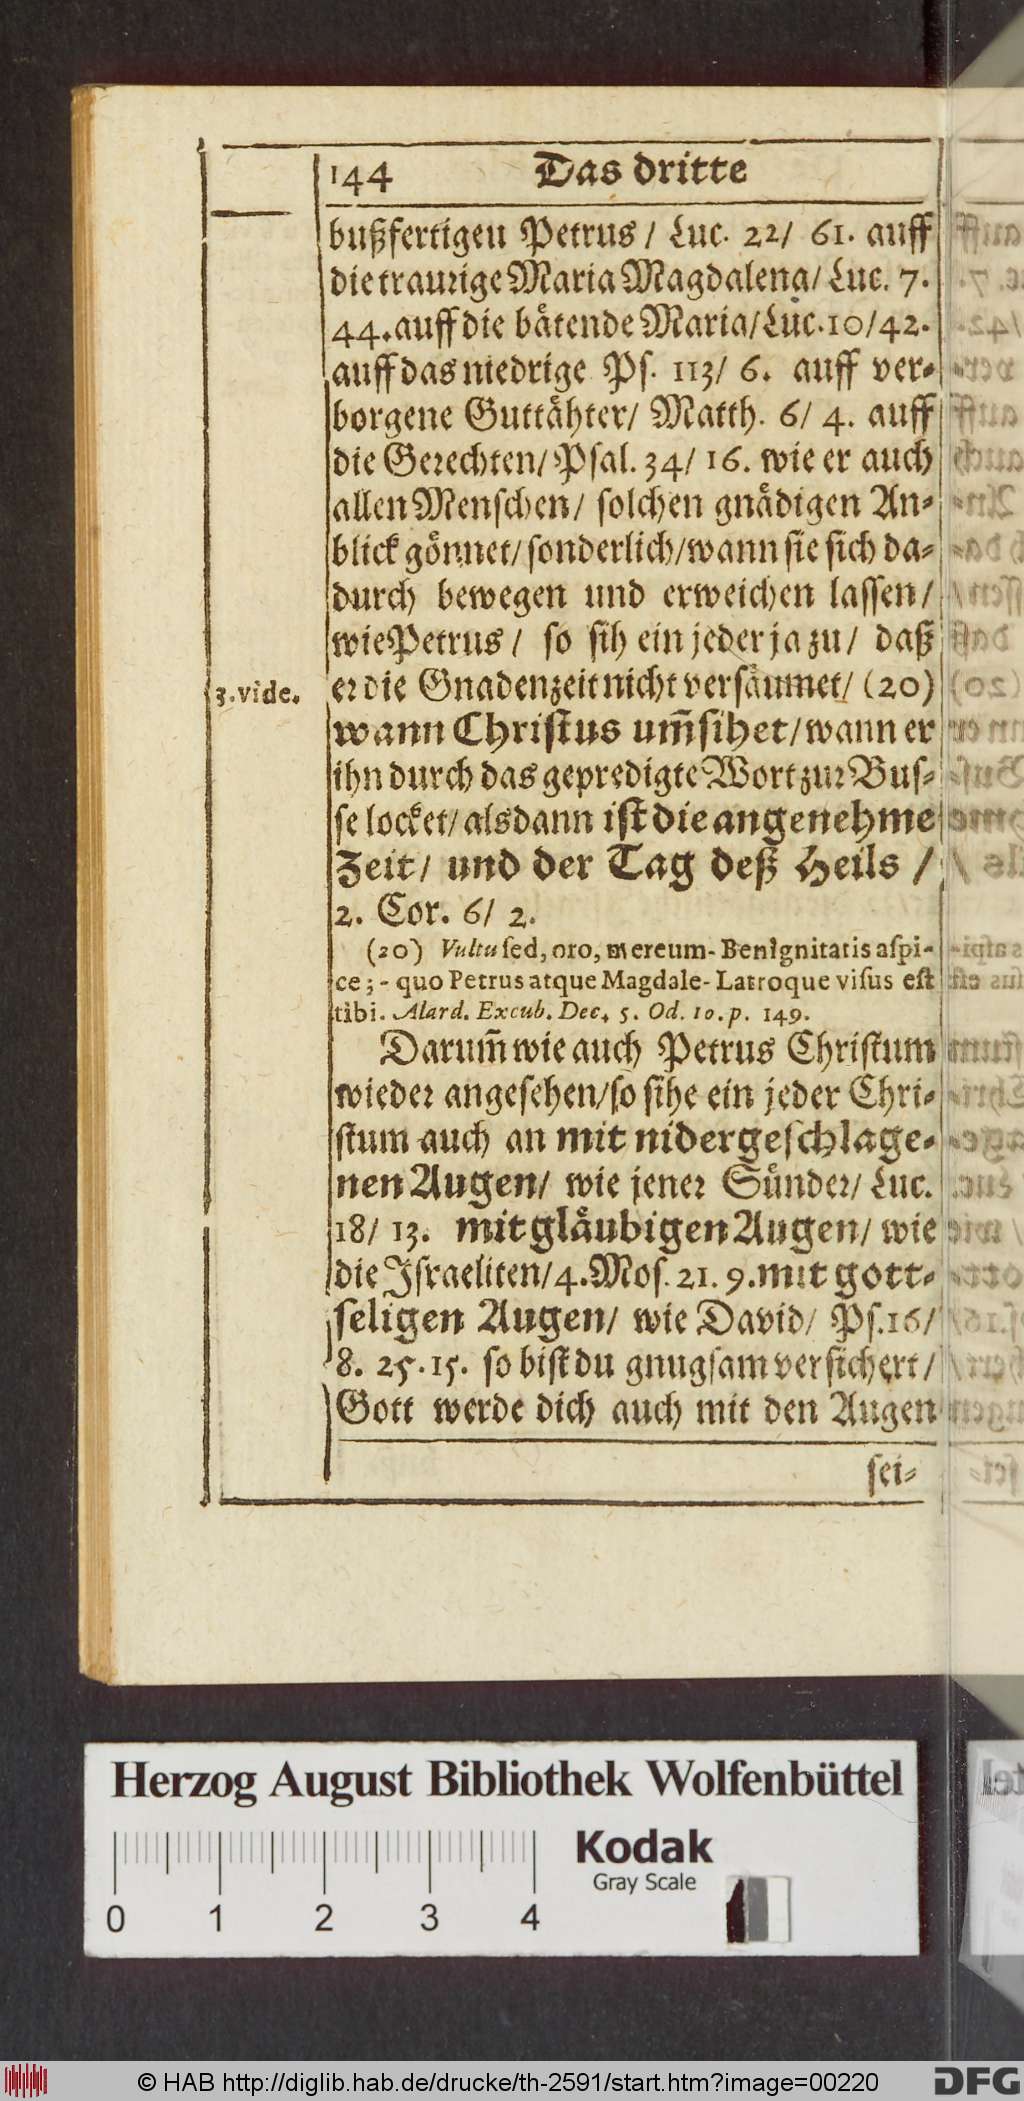 144 Das dritte
bußfertigen Petrus / Luc. 22/ 61. auff
die traurige Maria Magdalena/ Luc. 7.
44. auff die bätende Maria/ Luc. 10/42.
auff das niedrige Ps. 113/ 6. auff ver-
borgene Guttähter/ Matth. 6/ 4. auff
die Gerechten/ Psal. 34/ 16. wie er auch
allen Menschen/ solchen gnädigen An-
blick gönnet/ sonderlich/ wann sie sich da-
durch bewegen und erweichen lassen/
wie Petrus / so sih ein jeder ja zu/ daß
3. vide.
er die Gnadenzeit nicht versäumet/ (20)
wann Christus um̃sihet/ wann er
ihn durch das gepredigte Wort zur Bus-
se locket/ alsdann ist die angenehme
Zeit/ und der Tag deß Heils /
2. Cor. 6/ 2.
(20) Vultu sed, oro, mereum- Benignitatis aspi-
ce; - quo Petrus atque Magdale- Latroque visus est
tibi. Alard. Excub. Dec. 5. Od. 10. p. 149.
Darum̃ wie auch Petrus Christum
wieder angesehen/ so sihe ein jeder Chri-
stum auch an mit nidergeschlage-
nen Augen/ wie jener Sünder/ Luc.
18/ 13. mit gläubigen Augen/ wie
die Israeliten/ 4. Mos. 21. 9. mit gott-
seligen Augen/ wie David/ Ps. 16/
8. 25. 15. so bist du gnugsam versichert/
Gott werde dich auch mit den Augen
sei-
Herzog August Bibliothek Wolfenbüttel
Kodak
Gray Scale
0 1 2 3 4
© HAB http://diglib.hab.de/drucke/th-2591/start.htm?image=00220
DFG